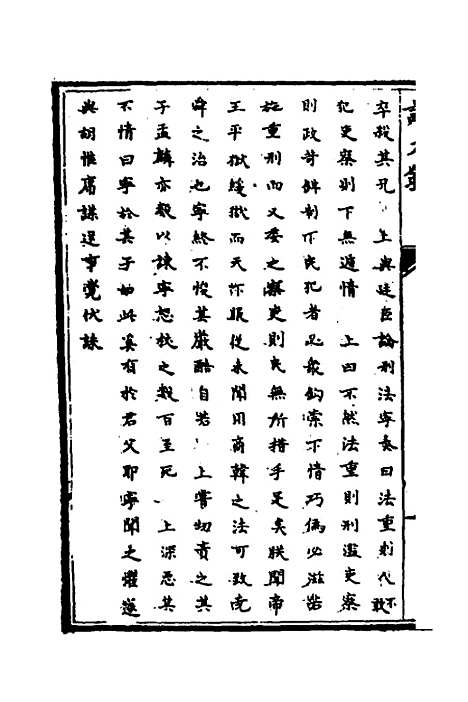 卒殺其孔 上與廷臣論刑法寧奏曰法重則人不敢
犯吏察則下無遁情 上曰不然法重則刑濫吏察
則政苛鉗制下民犯者必衆鉤索下情巧偽必滋
施重刑而又委之察吏則民無所措手足矣朕聞帝
王平獄緩獄而天下服從未聞用商韓之法可致堯
舜之治也寧終不悛其嚴酷自若 上嘗切責之其
子孟麟亦數以諫寧怒杖之數百至死 上深惡其
不情曰寧於其子如此奚有於君父耶寧聞之懼遂
與胡惟庸謀逆事覺伏誅